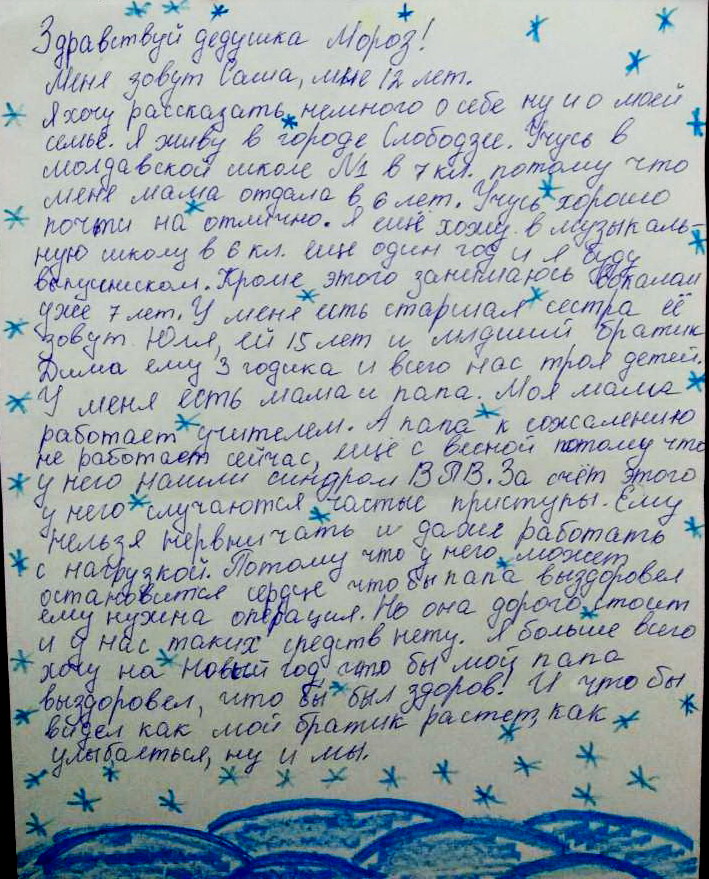 Здравствуй дедушка Мороз!
Меня зовут Саша, мне 12 лет.
Я хочу рассказать немного о себе ну и о моей
семье. Я живу в городе Слободзее. Учусь в
молдавской школе №1 в 7 кл. потому что
меня мама отдала в 6 лет. Учусь хорошо
почти на отлично. Я ещё хожу в музыкаль-
ную школу в 6 кл. ещё один год и я буду
выпускником. Кроме этого занимаюсь вокалом
уже 7 лет. У меня есть старшая сестра её
зовут Юля, ей 15 лет и младший братик
Дима ему 3 годика и всего нас троя детей.
У меня есть мама и папа. Моя мама
работает учителем. А папа к сожалению
не работает сейчас, ещё с весной потому что
у него нашли синдром ВПВ. За счёт этого
у него случаются частые приступы. Ему
нельзя нервничать и даже работать
с нагрузкой. Потому что у него может
остановится сердце что бы папа выздоровел
ему нужна операция. Но она дорого стоит
и у нас таких средств нету. Я больше всего
хочу на Новый год что бы мой папа
выздоровел, что бы был здоров! И что бы
видел как мой братик растет, как
улыбаеться, ну и мы.